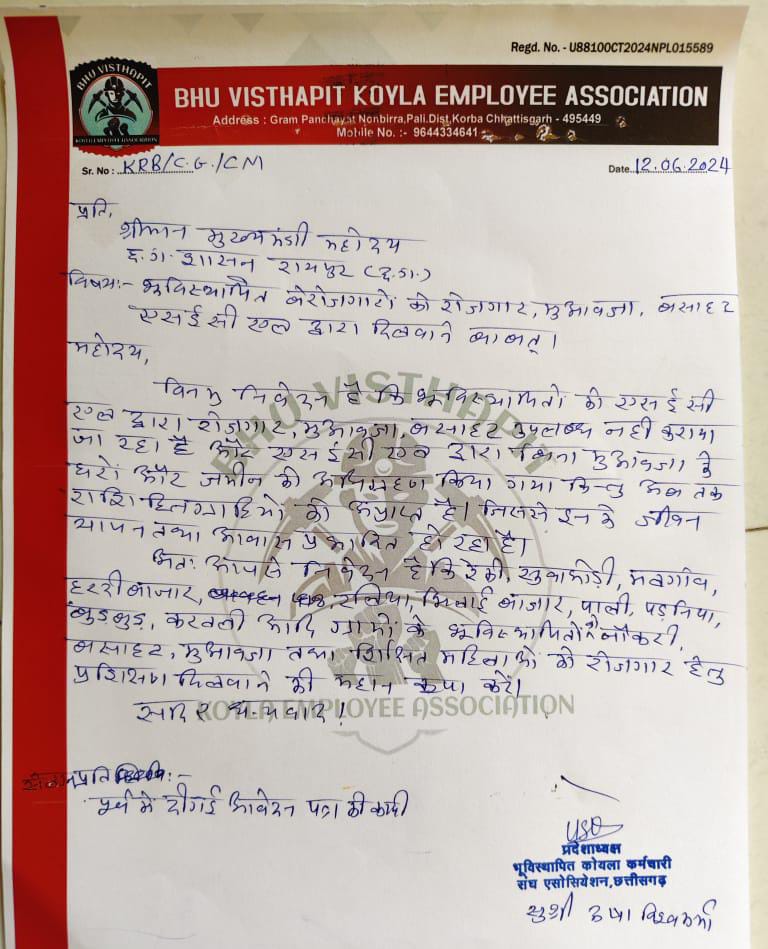 Regd. No. - U88100CT2024NPL015589
BHU VISTHAPIT
KOYLA EMPLOYEE ASSOCIATION
BHU VISTHAPIT KOYLA EMPLOYEE ASSOCIATION
Address : Gram Panchayat Nonbirra,Pali.Dist.Korba Chhattisgarh - 495449
Mobile No. :- 9644334641
Sr. No : KRB/C.G./CM
Date 12.06.2024
प्रति,
श्रीमान मुख्यमंत्री महोदय
छ.ग. शासन रायपुर (छ.ग.)
विषय:- भूविस्थापित बेरोजगारो को रोजगार, मुआवजा, बसाहट
एसईसीएल द्वारा दिलवाने बाबत्।
महोदय,
विनम्र निवेदन है कि भूविस्थापितो को एसईसी
एल द्वारा रोजगार, मुआवजा, बसाहट उपलब्ध नही कराया
जा रहा है और एसईसीएल द्वारा बिना मुआवजा के
घरो और जमीन की अधिग्रहण किया गया किन्तु अब तक
राशि हितग्राहियो को अप्राप्त है। जिससे इन के जीवन
यापन तथा आवास प्रभावित हो रहा है।
अतः आपसे निवेदन है कि रेकी, सुवाभोड़ी, मलगांव,
हरदीबाजार, रलिया, भिलाई बाजार, पाली, पड़निया,
बुड़बुड़, करतली आदि ग्रामो के भूविस्थापितो को नौकरी,
बसाहट, मुआवजा तथा शिक्षित महिलाओ को रोजगार हेतु
प्रशिक्षण दिलवाने की महान कृपा करें।
सादर धन्यवाद!
BHU VISTHAPIT
KOYLA EMPLOYEE ASSOCIATION
प्रति :-
पूर्व मे दी गई आवेदन पत्र की कापी
प्रदेशाध्यक्ष
भूविस्थापित कोयला कर्मचारी
संघ एसोसियेशन,छत्तीसगढ़
सुश्री उषा विश्वकर्मा